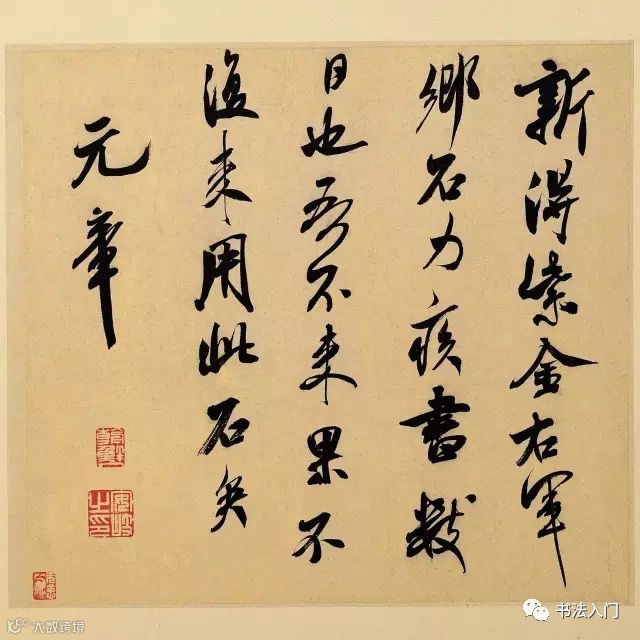 新得紫金右軍
鄉石力疾書數
日也吾不来果不
復来用此石矣
元章
书法入门
大数跨境